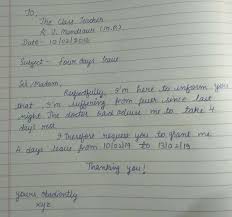 To,
The Class Teacher
K. V. Mandlaur (M.P.)
Date - 10/02/2019
Subject - four days leave
Sir/Madam,
Respectfully, I'm here to inform you
that, I'm suffering from fever since last
night. The doctor had advise me to take 4
days rest.
I therefore request you to grant me
4 days leave from 10/02/19 to 13/02/19
Thanking you!
yours obidiently
xyz